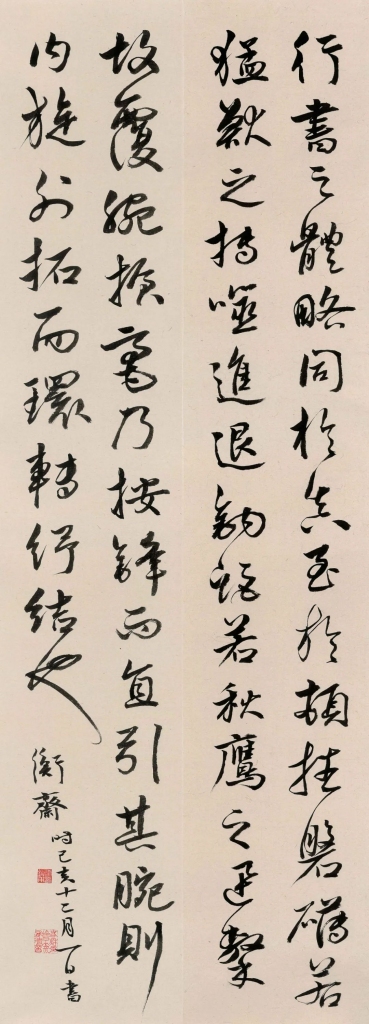 行書之體略同於真至於頓挫磐礴若
猛獸之搏噬進退鉤距若秋鷹之迅擊
故覆腕搶毫乃按鋒而直引其腕則
內旋外拓而環轉紓結也
衡齋 時己亥十二月一日書